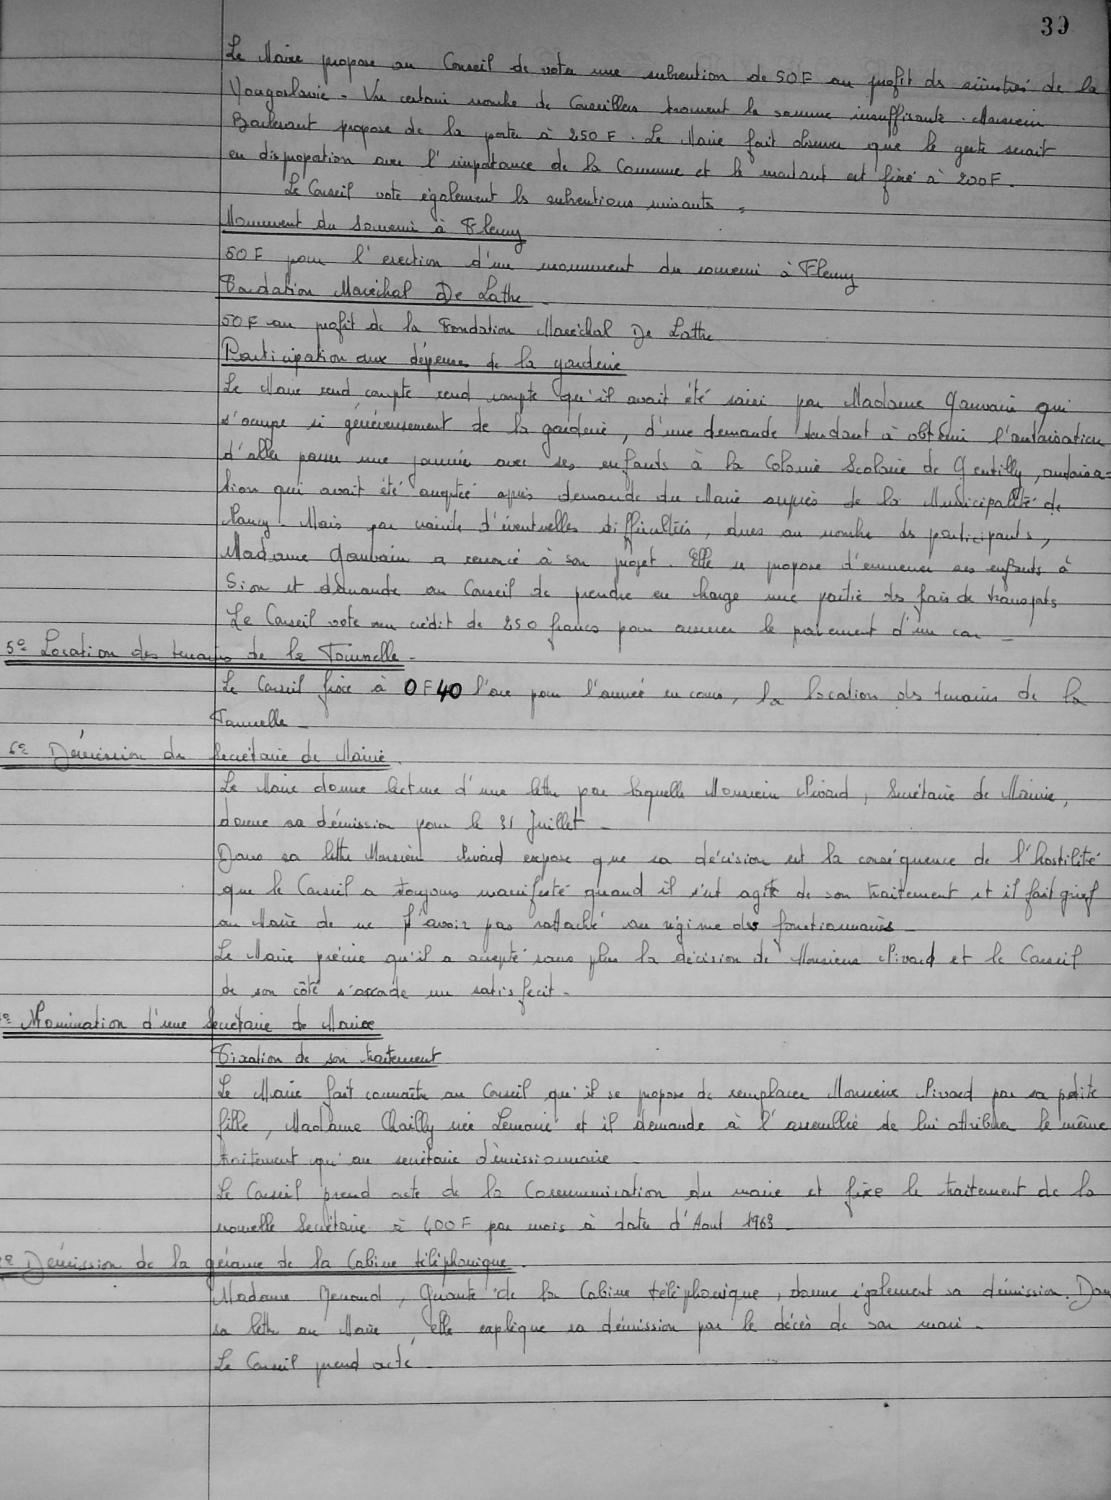 39
Le Maire propose au Conseil de voter une subvention de 50 F au profit des sinistrés de la
Yougoslavie - Un certain nombre de Conseillers trouvent la somme insuffisante. Monsieur
propose de la porter à 250 F. Le Maire fait observer que le geste serait
en dispropation avec l'importance de la Commune et le montant est fixé à 200 F.
Le Conseil vote également les subventions suivantes
Monument du Souvenir à Fleury
50 F pour l'erection d'un monument du souvenir à Fleury
Fondation Maréchal De Lattre
50 F au profit de la Fondation Maréchal De Lattre
Participation aux dépenses de la garderie
Le Maire rend compte rend compte qu'il avait été saisi par Madame Gauvain qui
s'occupe si généreusement de la garderie, d'une demande tendant à obtenir l'autorisation
d'aller passer une journée avec ses enfants à la Colonie Scolaire de Gentilly, autorisa=
tion qui avait été acceptée après demande du Maire auprès de la Municipalité de
Nancy. Mais par crainte d'éventuelles difficultés, dues au nombre des participants,
Madame Gauvain a renoncé à son projet. Elle se propose d'emmener ses enfants à
Sion et demande au Conseil de prendre en charge une partie des frais de transports
Le Conseil vote un crédit de 250 francs pour assurer le paiement d'un car -
5º Location des terrains de la Tournelle -
Le Conseil fixe à 0 F 40 l'are pour l'année en cours, la location des terrains de la
Tournelle -
6º Démission du Secrétaire de Mairie
Le Maire donne lecture d'une lettre par laquelle Monsieur Nivard, Secrétaire de Mairie,
donne sa démission pour le 31 Juillet -
Dans sa lettre Monsieur Nivard expose que sa décision est la conséquence de l'hostilité
que le Conseil a toujours manifesté quand il s'est agit de son traitement et il fait grief
au Maire de ne l'avoir pas rattaché au régime des fonctionnaires -
Le Maire précise qu'il a accepté sans plus la décision de Monsieur Nivard et le Conseil
de son côté s'accorde un satisfecit -
Nomination d'une Secrétaire de Mairie
Fixation de son traitement
Le Maire fait connaître au Conseil qu'il se propose de remplacer Monsieur Nivard par sa petite
fille, Madame Chailly née Lemarié et il demande à l'assemblée de lui attribuer le même
traitement qu'au secrétaire démissionnaire -
Le Conseil prend acte de la Communication du maire et fixe le traitement de la
nouvelle Secrétaire à 400 F par mois à dater d'Aout 1963 -
Démission de la gérante de la Cabine téléphonique -
Madame Renaud, Gérante de la Cabine téléphonique, donne également sa démission. Dans
sa lettre au Maire, elle explique sa démission par le décès de son mari -
Le Conseil prend acte -